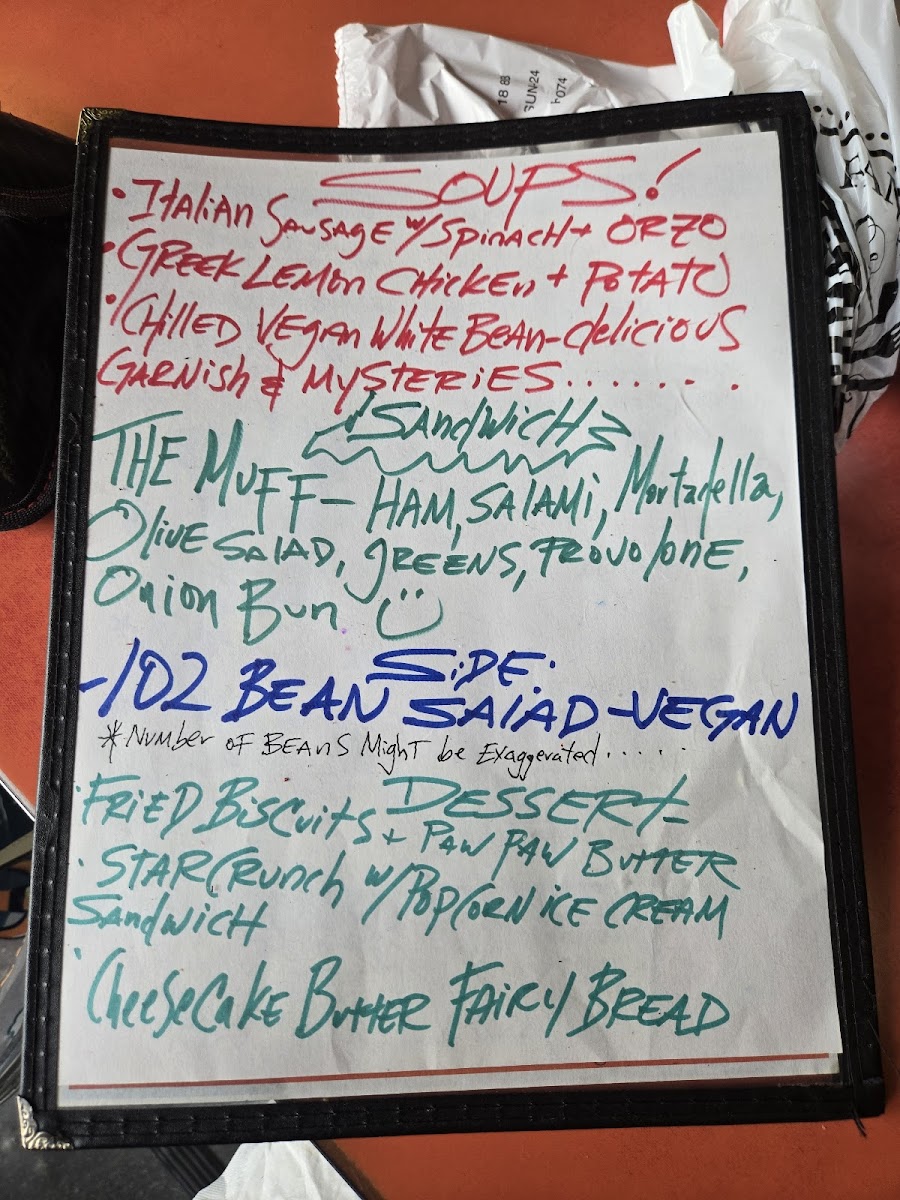 18 88
SUN-24
F074
SOUPS!
• Italian Sausage w/Spinach + ORZO
• GREEK LEMON CHICKEN + POTATO
• CHILLED VEGAN White BEAN-delicious
GARNISH & MYSTERIES.......
SANDWICH
THE MUFF - HAM, SALAMI, Mortadella,
Olive SALAD, GREENS, PROVOlONE,
Onion Bun
SIDE:
-102 BEAN SALAD-VEGAN
*NUMBER OF BEANS Might be Exaggerated.....
DESSERT-
• FRIED BISCUITS + PAW PAW BUTTER
• STAR CRUNCH w/POPCORN ICE CREAM
SANDWICH
• CheeseCAKE BUTTER FAIRY BREAD